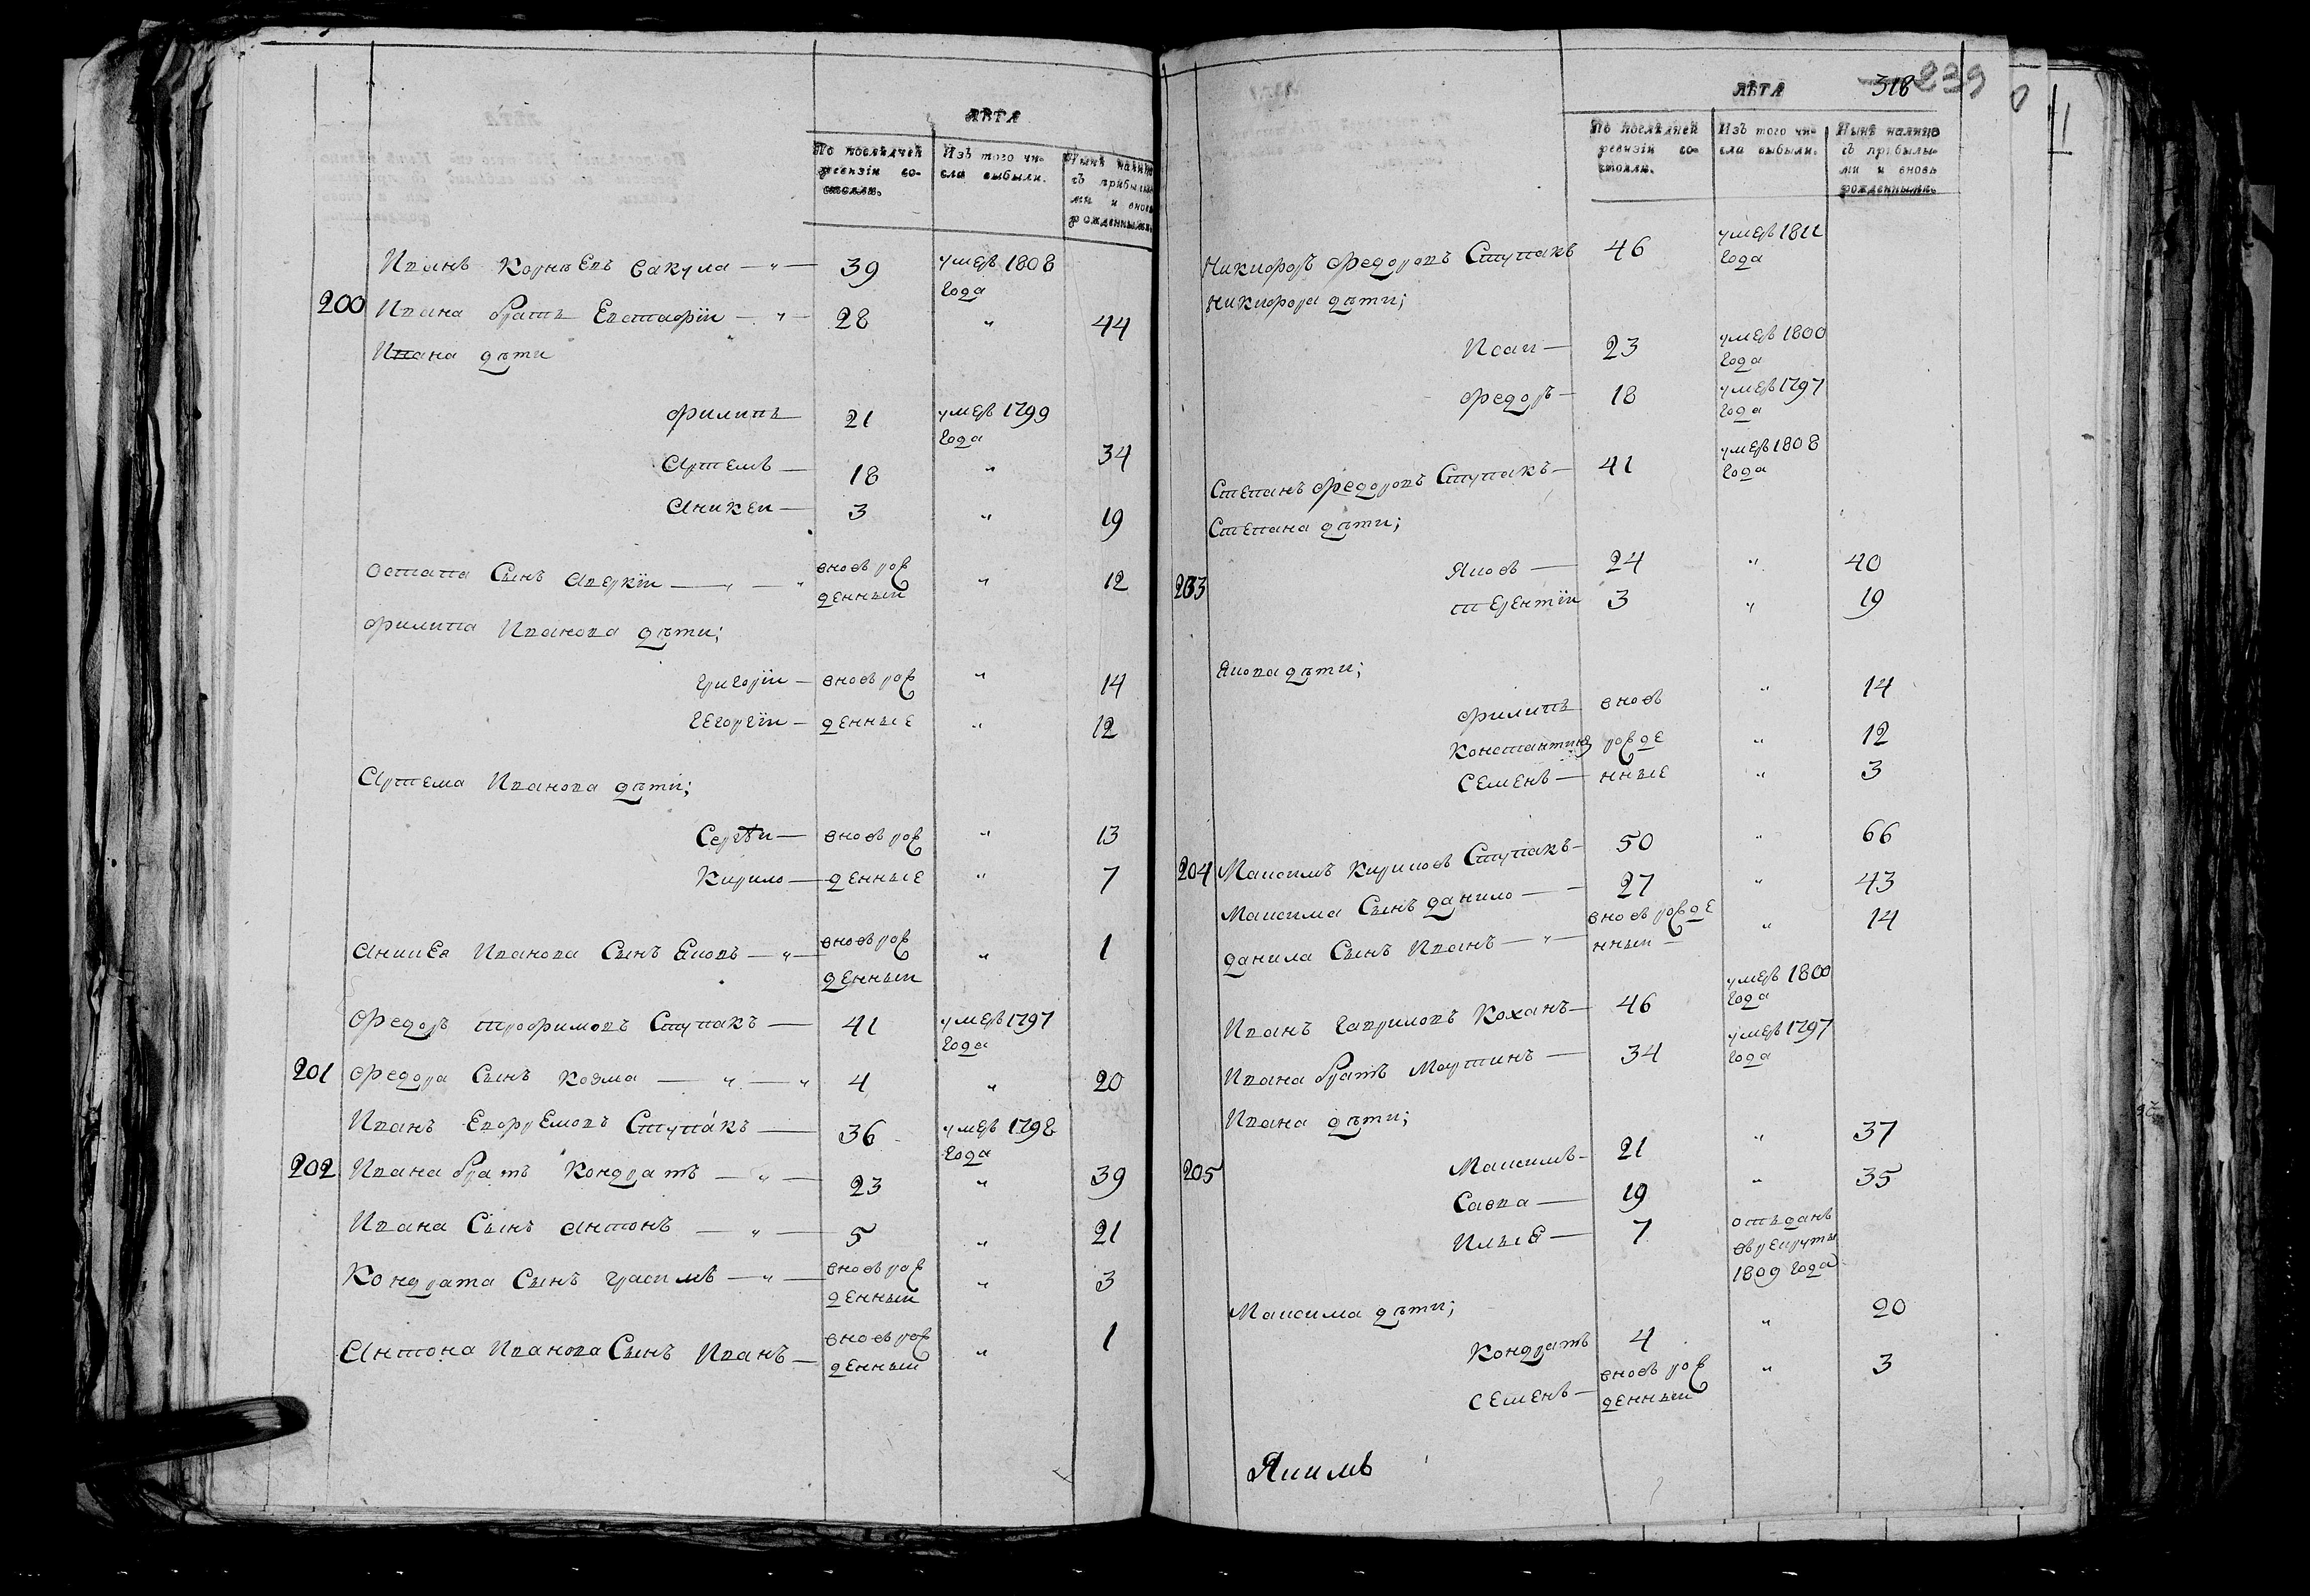 ЛѢТА
По послѣдней ревизіи состояли.
Изъ того числа выбыли.
Нынѣ налицо съ прибылыми и вновь рожденными.
Иванъ Корнѣевъ Вакула — " — 39 умеръ 1808 года
200 Ивана братъ Евстафіи — " — 28 " 44
Ивана дѣти
Филипъ 21 умеръ 1799 года
Артемъ — 18 " 34
Аникеи — 3 " 19
Остапа Сынъ Аверкіи — " — " вновь рожденныи " 12
Филипа Иванова дѣти;
Григоріи — вновь рож " 14
Георгіи — денные " 12
Артема Иванова дѣти;
Сергѣи — вновь рож " 13
Кирило — денные " 7
Аникея Иванова Сынъ Яковъ — " — вновь рожденныи " 1
Федоръ Трофимовъ Ступакъ — 41 умеръ 1797 года
201 Федора Сынъ Козма — " — " 4 " 20
Иванъ Евфремовъ Ступакъ — 36 умеръ 1798 года
202 Ивана братъ Кондратъ — " — 23 " 39
Ивана Сынъ Антонъ — " — 5 " 21
Кондрата Сынъ Грасимъ — " — вновь рожденныи " 3
Антона Иванова Сынъ Иванъ — вновь рожденныи " 1
318 239
ЛѢТА
По послѣдней ревизіи состояли.
Изъ того числа выбыли.
Нынѣ налицо съ прибылыми и вновь рожденными.
Никифоръ Федоровъ Ступакъ 46 умеръ 1811 года
Никифора дѣти;
Исаи — 23 умеръ 1800 года
Федоръ — 18 умеръ 1797 года
Степанъ Федоровъ Ступакъ — 41 умеръ 1808 года
Степана дѣти;
203 Яковъ — 24 " 40
Терентіи 3 " 19
Якова дѣти;
Филипъ вновь " 14
Константинъ рожде " 12
Семенъ — нные " 3
204 Максимъ Кириловъ Ступакъ — 50 " 66
Максима Сынъ Данило — — 27 " 43
Данила Сынъ Иванъ — " — вновь рожденныи — " 14
Иванъ Гавриловъ Коханъ — 46 умеръ 1800 года
Ивана братъ Мартинъ — 34 умеръ 1797 года
Ивана дѣти;
205 Максимъ — 21 " 37
Савва — 19 " 35
Илья — 7 отъданъ въ рекруты 1809 года
Максима дѣти;
Кондратъ 4 " 20
Семенъ — вновь рожденныи " 3
Якимъ